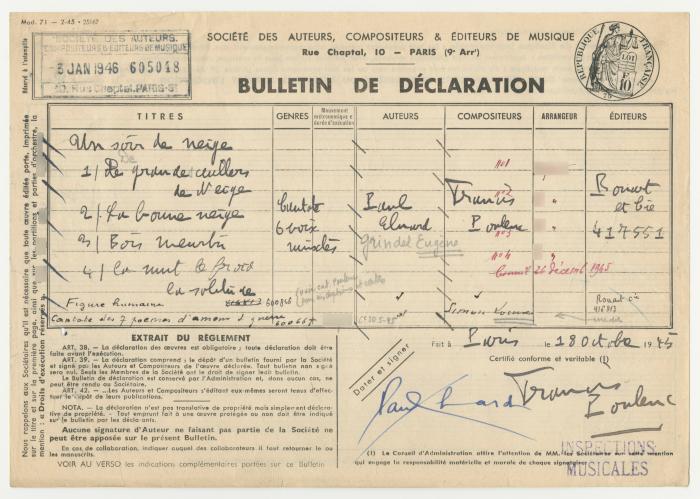 Mod. 71 — 2-45 • 25162
Réservé à l'estampille
SOCIÉTÉ DES AUTEURS,
COMPOSITEURS & ÉDITEURS DE MUSIQUE
3 JAN 1946 605018
10, Rue Chaptal, PARIS-9e
SOCIÉTÉ DES AUTEURS, COMPOSITEURS & ÉDITEURS DE MUSIQUE
Rue Chaptal, 10 — PARIS (9e Arrt)
BULLETIN DE DÉCLARATION
RÉPUBLIQUE FRANÇAISE
LOI
10
TITRES GENRES Mouvement métronomique & durée d'exécution AUTEURS COMPOSITEURS ARRANGEUR ÉDITEURS
Un soir de neige
1/ De grandes cuillers
de Neige
2/ La bonne neige
3/ Bois meurtri
4/ La nuit le froid
la solitude
Cantate
6 voix
mixtes
Paul
Eluard
Grindel Eugène
n°1
n°2
n°3
n°4
Francis
Poulenc
26 décemb 1945
Rouart
et Cie
417551
Figure humaine 600846
Cantate des 7 poèmes d'amour et guerre 600667
Rouart
416813
EXTRAIT DU RÈGLEMENT
ART. 38. — La déclaration des œuvres est obligatoire ; toute déclaration doit être
faite avant l'exécution.
ART. 39. — La déclaration comprend : le dépôt d'un bulletin fourni par la Société
et signé par les Auteurs et Compositeurs de l'œuvre déclarée. Tout bulletin non signé
sera nul. Seuls les Membres de la Société ont le droit de signer ledit bulletin.
Le Bulletin de déclaration est conservé par l'Administration et, dans aucun cas, ne
peut être rendu au Sociétaire.
ART. 42. — Les Auteurs et Compositeurs s'éditant eux-mêmes seront tenus d'effec-
tuer le dépôt de leurs publications.
NOTA. — La déclaration n'est pas translative de propriété mais simplement déclara-
tive de propriété. Tout emprunt fait à une œuvre protégée ou non doit être indiqué
sur le bulletin par les déclarants.
Aucune signature d'Auteur ne faisant pas partie de la Société ne
peut être apposée sur le présent Bulletin.
En cas de collaboration, indiquer auquel des collaborateurs il faut retourner le ou
les manuscrits.
VOIR AU VERSO les indications complémentaires portées sur ce Bulletin
Fait à Paris le 18 Octobre 1945
Certifié conforme et véritable (1)
Dater et signer
Paul Eluard
Francis
Poulenc
(1) Le Conseil d'Administration attire l'attention de MM. les Sociétaires sur cette mention
qui engage la responsabilité matérielle et morale de chaque signataire.
INSPECTIONS
MUSICALES
Nous rappelons aux Sociétaires qu'il est nécessaire que toute œuvre éditée porte, imprimée
sur le titre et sur la première page, ainsi que sur les partitions et parties d'orchestre, la
mention : « Droits d'exécution réservés ».